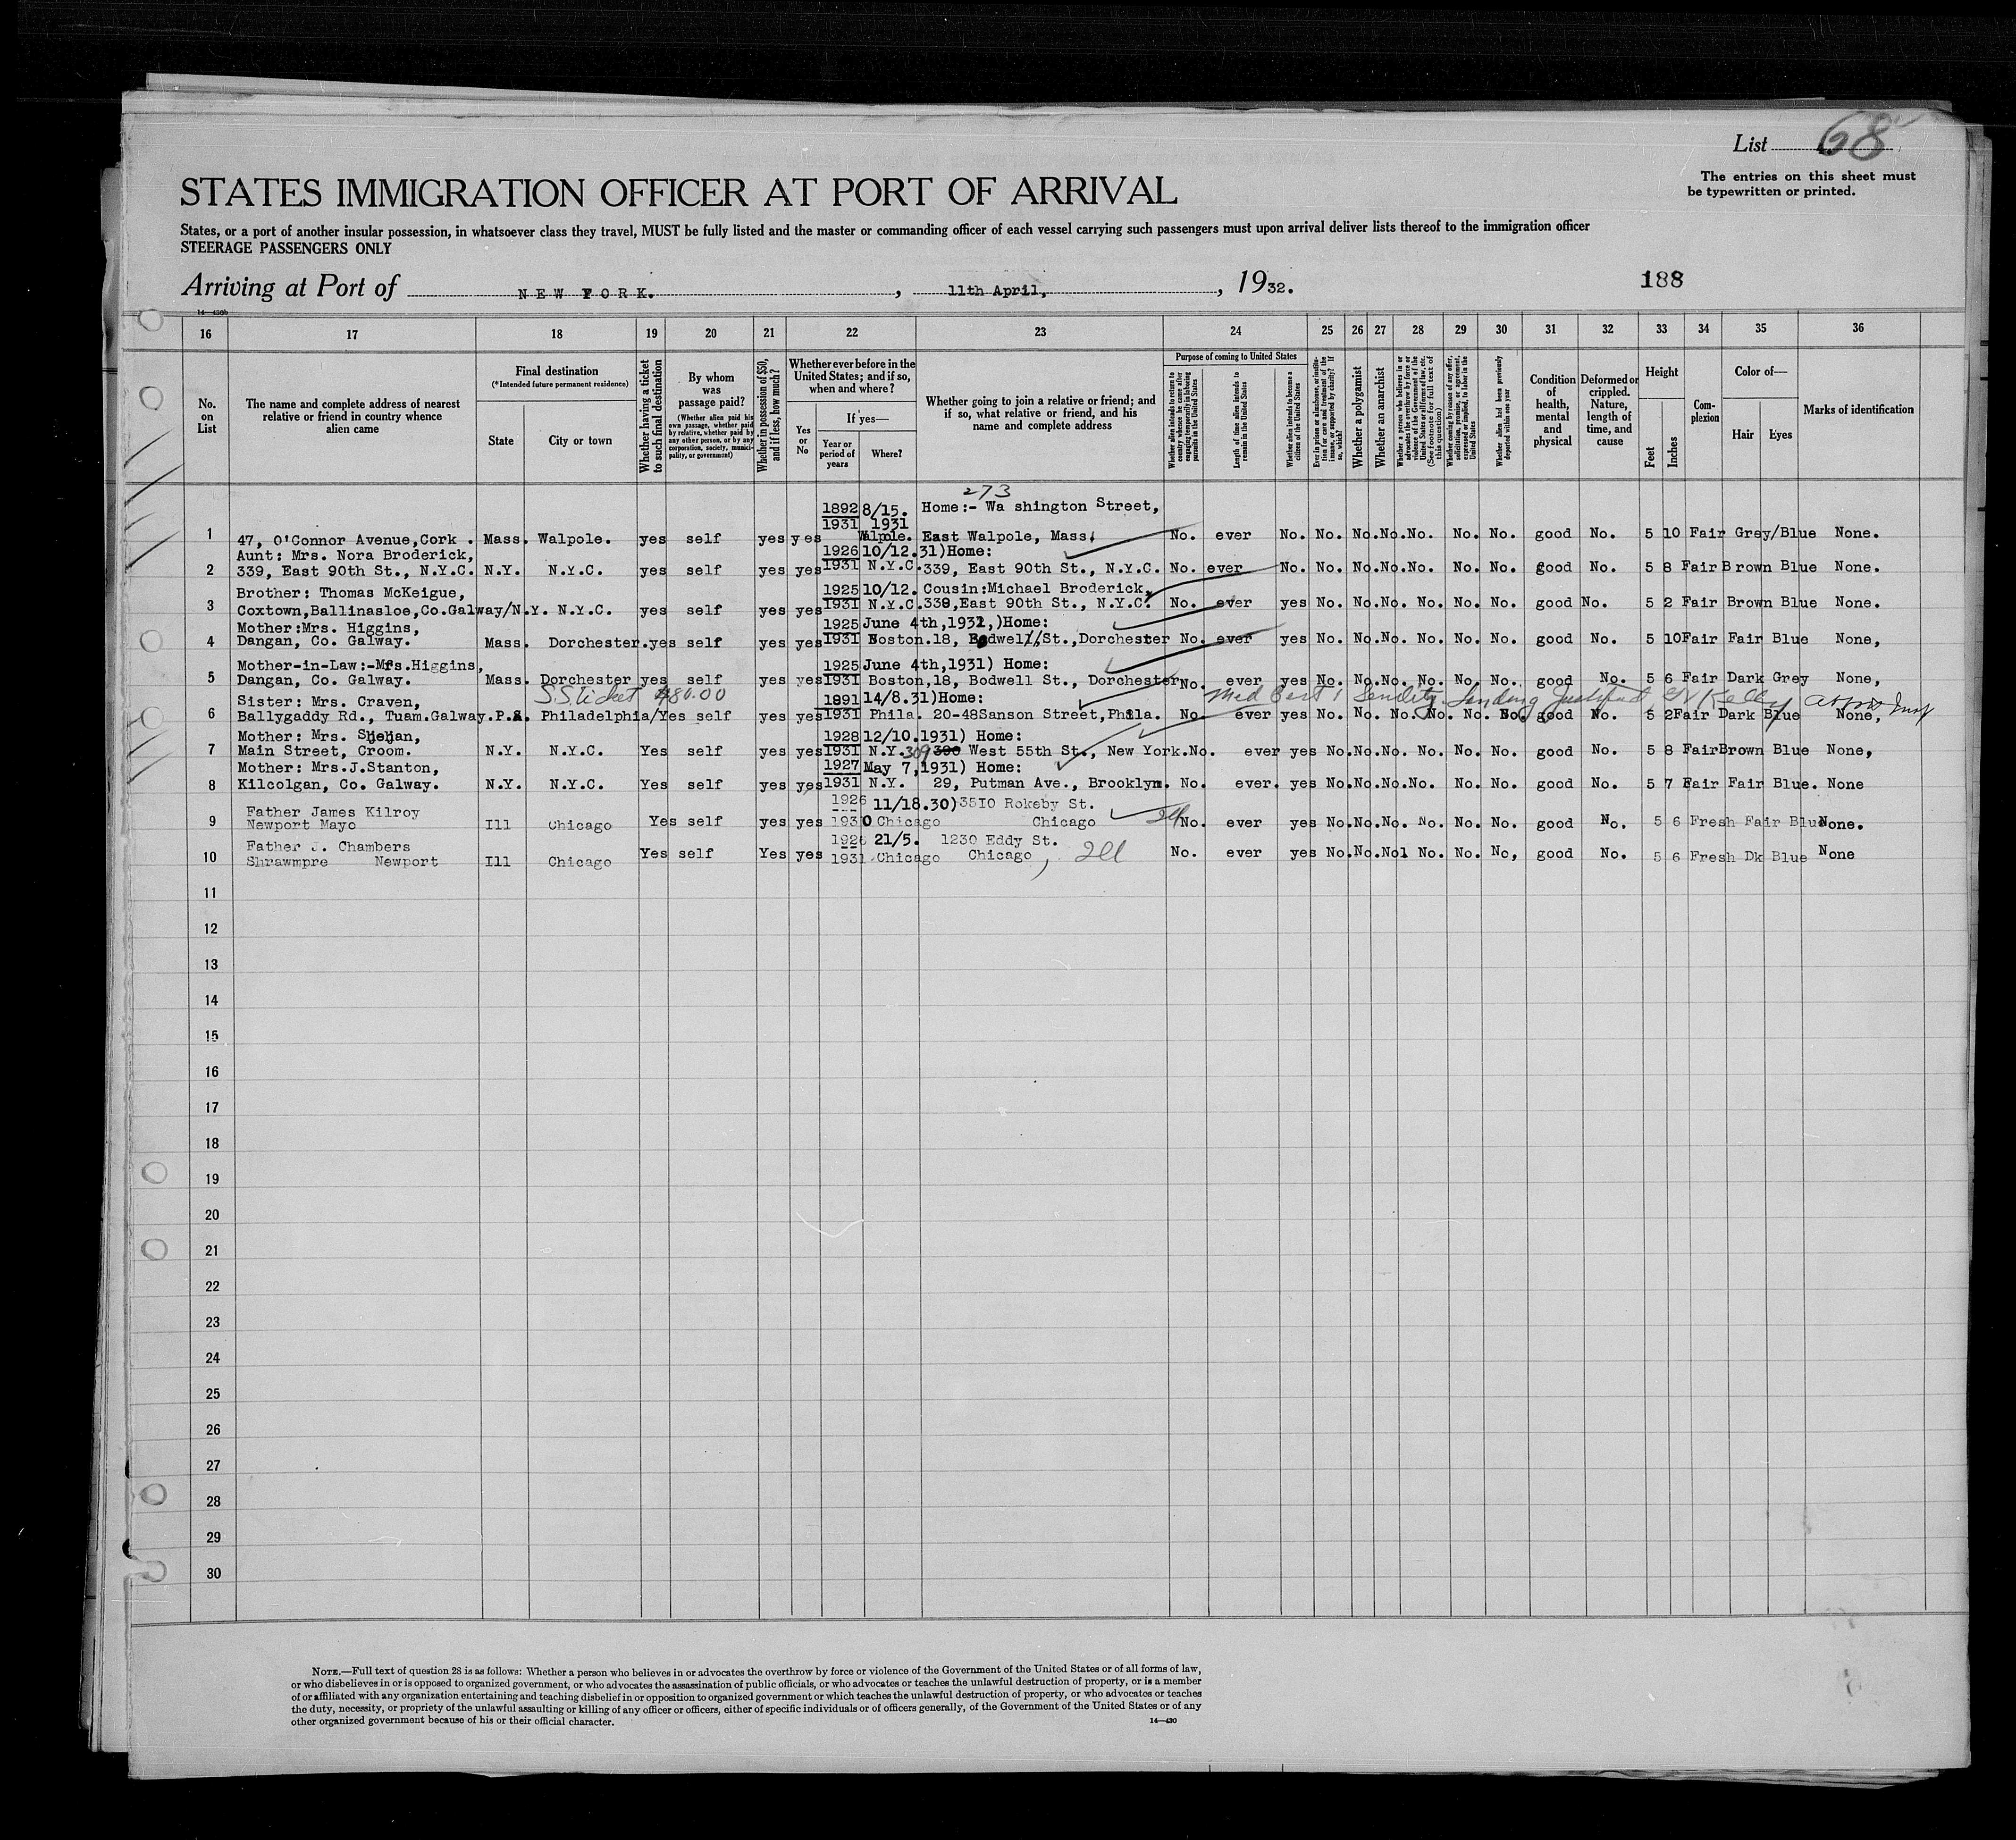 List 68
The entries on this sheet must
be typewritten or printed.
STATES IMMIGRATION OFFICER AT PORT OF ARRIVAL
States, or a port of another insular possession, in whatsoever class they travel, MUST be fully listed and the master or commanding officer of each vessel carrying such passengers must upon arrival deliver lists thereof to the immigration officer
STEERAGE PASSENGERS ONLY
Arriving at Port of NEW YORK. , 11th April, , 1932.
188
14—430b
16 17 18 19 20 21 22 23 24 25 26 27 28 29 30 31 32 33 34 35 36
No.
on
List
The name and complete address of nearest
relative or friend in country whence
alien came
Final destination
(*Intended future permanent residence)
State
City or town
Whether having a ticket
to such final destination
By whom
was
passage paid?
(Whether alien paid his
own passage, whether paid
by relative, whether paid by
any other person, or by any
corporation, society, munici-
pality, or government)
Whether in possession of $50,
and if less, how much?
Whether ever before in the
United States; and if so,
when and where?
Yes
or
No
If yes—
Year or
period of
years
Where?
Whether going to join a relative or friend; and
if so, what relative or friend, and his
name and complete address
Purpose of coming to United States
Whether alien intends to return to
country whence he came after
engaging temporarily in laboring
pursuits in the United States
Length of time alien intends to
remain in the United States
Whether alien intends to become a
citizen of the United States
Ever in prison or almshouse, or institu-
tion for care and treatment of the
insane, or supported by charity? If
so, which?
Whether a polygamist
Whether an anarchist
Whether a person who believes in or
advocates the overthrow by force or
violence of the Government of the
United States or all forms of law, etc.
(See footnote for full text of
this question)
Whether coming by reason of any offer,
solicitation, promise, or agreement,
expressed or implied, to labor in the
United States
Whether alien had been previously
deported within one year
Condition
of
health,
mental
and
physical
Deformed or
crippled.
Nature,
length of
time, and
cause
Height
Feet
Inches
Com-
plexion
Color of—
Hair
Eyes
Marks of identification
273
1892 8/15. Home:- Wa shington Street,
1931 1931
1 47, O'Connor Avenue,Cork . Mass. Walpole. yes self yes yes Walpole. East Walpole, Mass. No. ever No. No. No. No. No. No. No. good No. 5 10 Fair Grey/Blue None.
Aunt: Mrs. Nora Broderick, 1926 10/12.31)Home:
2 339, East 90th St., N.Y.C. N.Y. N.Y.C. yes self yes yes 1931 N.Y.C. 339, East 90th St., N.Y.C. No. ever No. No. No. No. No. No. No. good No. 5 8 Fair Brown Blue None.
Brother: Thomas McKeigue, 1925 10/12. Cousin:Michael Broderick,
3 Coxtown,Ballinasloe,Co.Galway/N.Y. N.Y.C. yes self yes yes 1931 N.Y.C. 339,East 90th St., N.Y.C. No. ever yes No. No. No. No. No. No. good No. 5 2 Fair Brown Blue None.
Mother:Mrs. Higgins, 1925 June 4th,1931,)Home:
4 Dangan, Co. Galway. Mass. Dorchester. yes self yes yes 1931 Boston. 18, Bodwell St.,Dorchester No. ever yes No. No. No. No. No. No. good No. 5 10 Fair Fair Blue None,
Mother-in-Law:-Mrs.Higgins, 1925 June 4th,1931) Home:
5 Dangan, Co. Galway. Mass. Dorchester yes self yes yes 1931 Boston, 18, Bodwell St., Dorchester No. ever yes No. No. No. No. No. No. good No. 5 6 Fair Dark Grey None,
S.S. ticket $80.00
Med Cert: Senility Landing Justified
Sister: Mrs. Craven, 1891 14/8.31)Home:
6 Ballygaddy Rd., Tuam.Galway. P.A. Philadelphia/Yes self yes yes 1931 Phila. 20-48Sanson Street,Phila. No. ever yes No. No. No. No. No. No. good No. 5 2 Fair Dark Blue None,
Mother: Mrs. Shehan, 1928 12/10.1931) Home:
7 Main Street, Croom. N.Y. N.Y.C. Yes self yes yes 1931 N.Y. 309 West 55th St., New York. No. ever yes No. No. No. No. No. No. good No. 5 8 Fair Brown Blue None,
Mother: Mrs.J.Stanton, 1927 May 7,1931) Home:
8 Kilcolgan, Co. Galway. N.Y. N.Y.C. Yes self yes yes 1931 N.Y. 29, Putman Ave., Brooklyn. No. ever. yes No. No. No. No. No. No. good No. 5 7 Fair Fair Blue. None
Father James Kilroy 1926 11/18.30)3510 Rokeby St.
9 Newport Mayo Ill Chicago Yes self yes yes 1930 Chicago Chicago Ill No. ever yes No. No. No. No. No. No. good No. 5 6 Fresh Fair Blue None.
Father J. Chambers 1926 21/5. 1230 Eddy St.
10 Shrawmpre Newport Ill Chicago Yes self Yes yes 1931 Chicago Chicago, Ill No. ever yes No. No. No1 No. No. No, good No. 5 6 Fresh Dk Blue None
11
12
13
14
15
16
17
18
19
20
21
22
23
24
25
26
27
28
29
30
NOTE.—Full text of question 28 is as follows: Whether a person who believes in or advocates the overthrow by force or violence of the Government of the United States or of all forms of law,
or who disbelieves in or is opposed to organized government, or who advocates the assassination of public officials, or who advocates or teaches the unlawful destruction of property, or is a member
of or affiliated with any organization entertaining and teaching disbelief in or opposition to organized government or which teaches the unlawful destruction of property, or who advocates or teaches
the duty, necessity, or propriety of the unlawful assaulting or killing of any officer or officers, either of specific individuals or of officers generally, of the Government of the United States or of any
other organized government because of his or their official character.
14—430